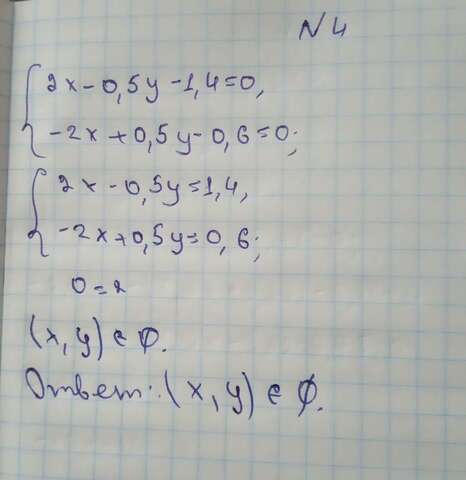 N4
2x-0,5y-1,4=0,
-2x+0,5y-0,6=0;
2x-0,5y=1,4,
-2x+0,5y=0,6;
0=2
(x,y)∈∅.
Ответ:(x,y)∈∅.